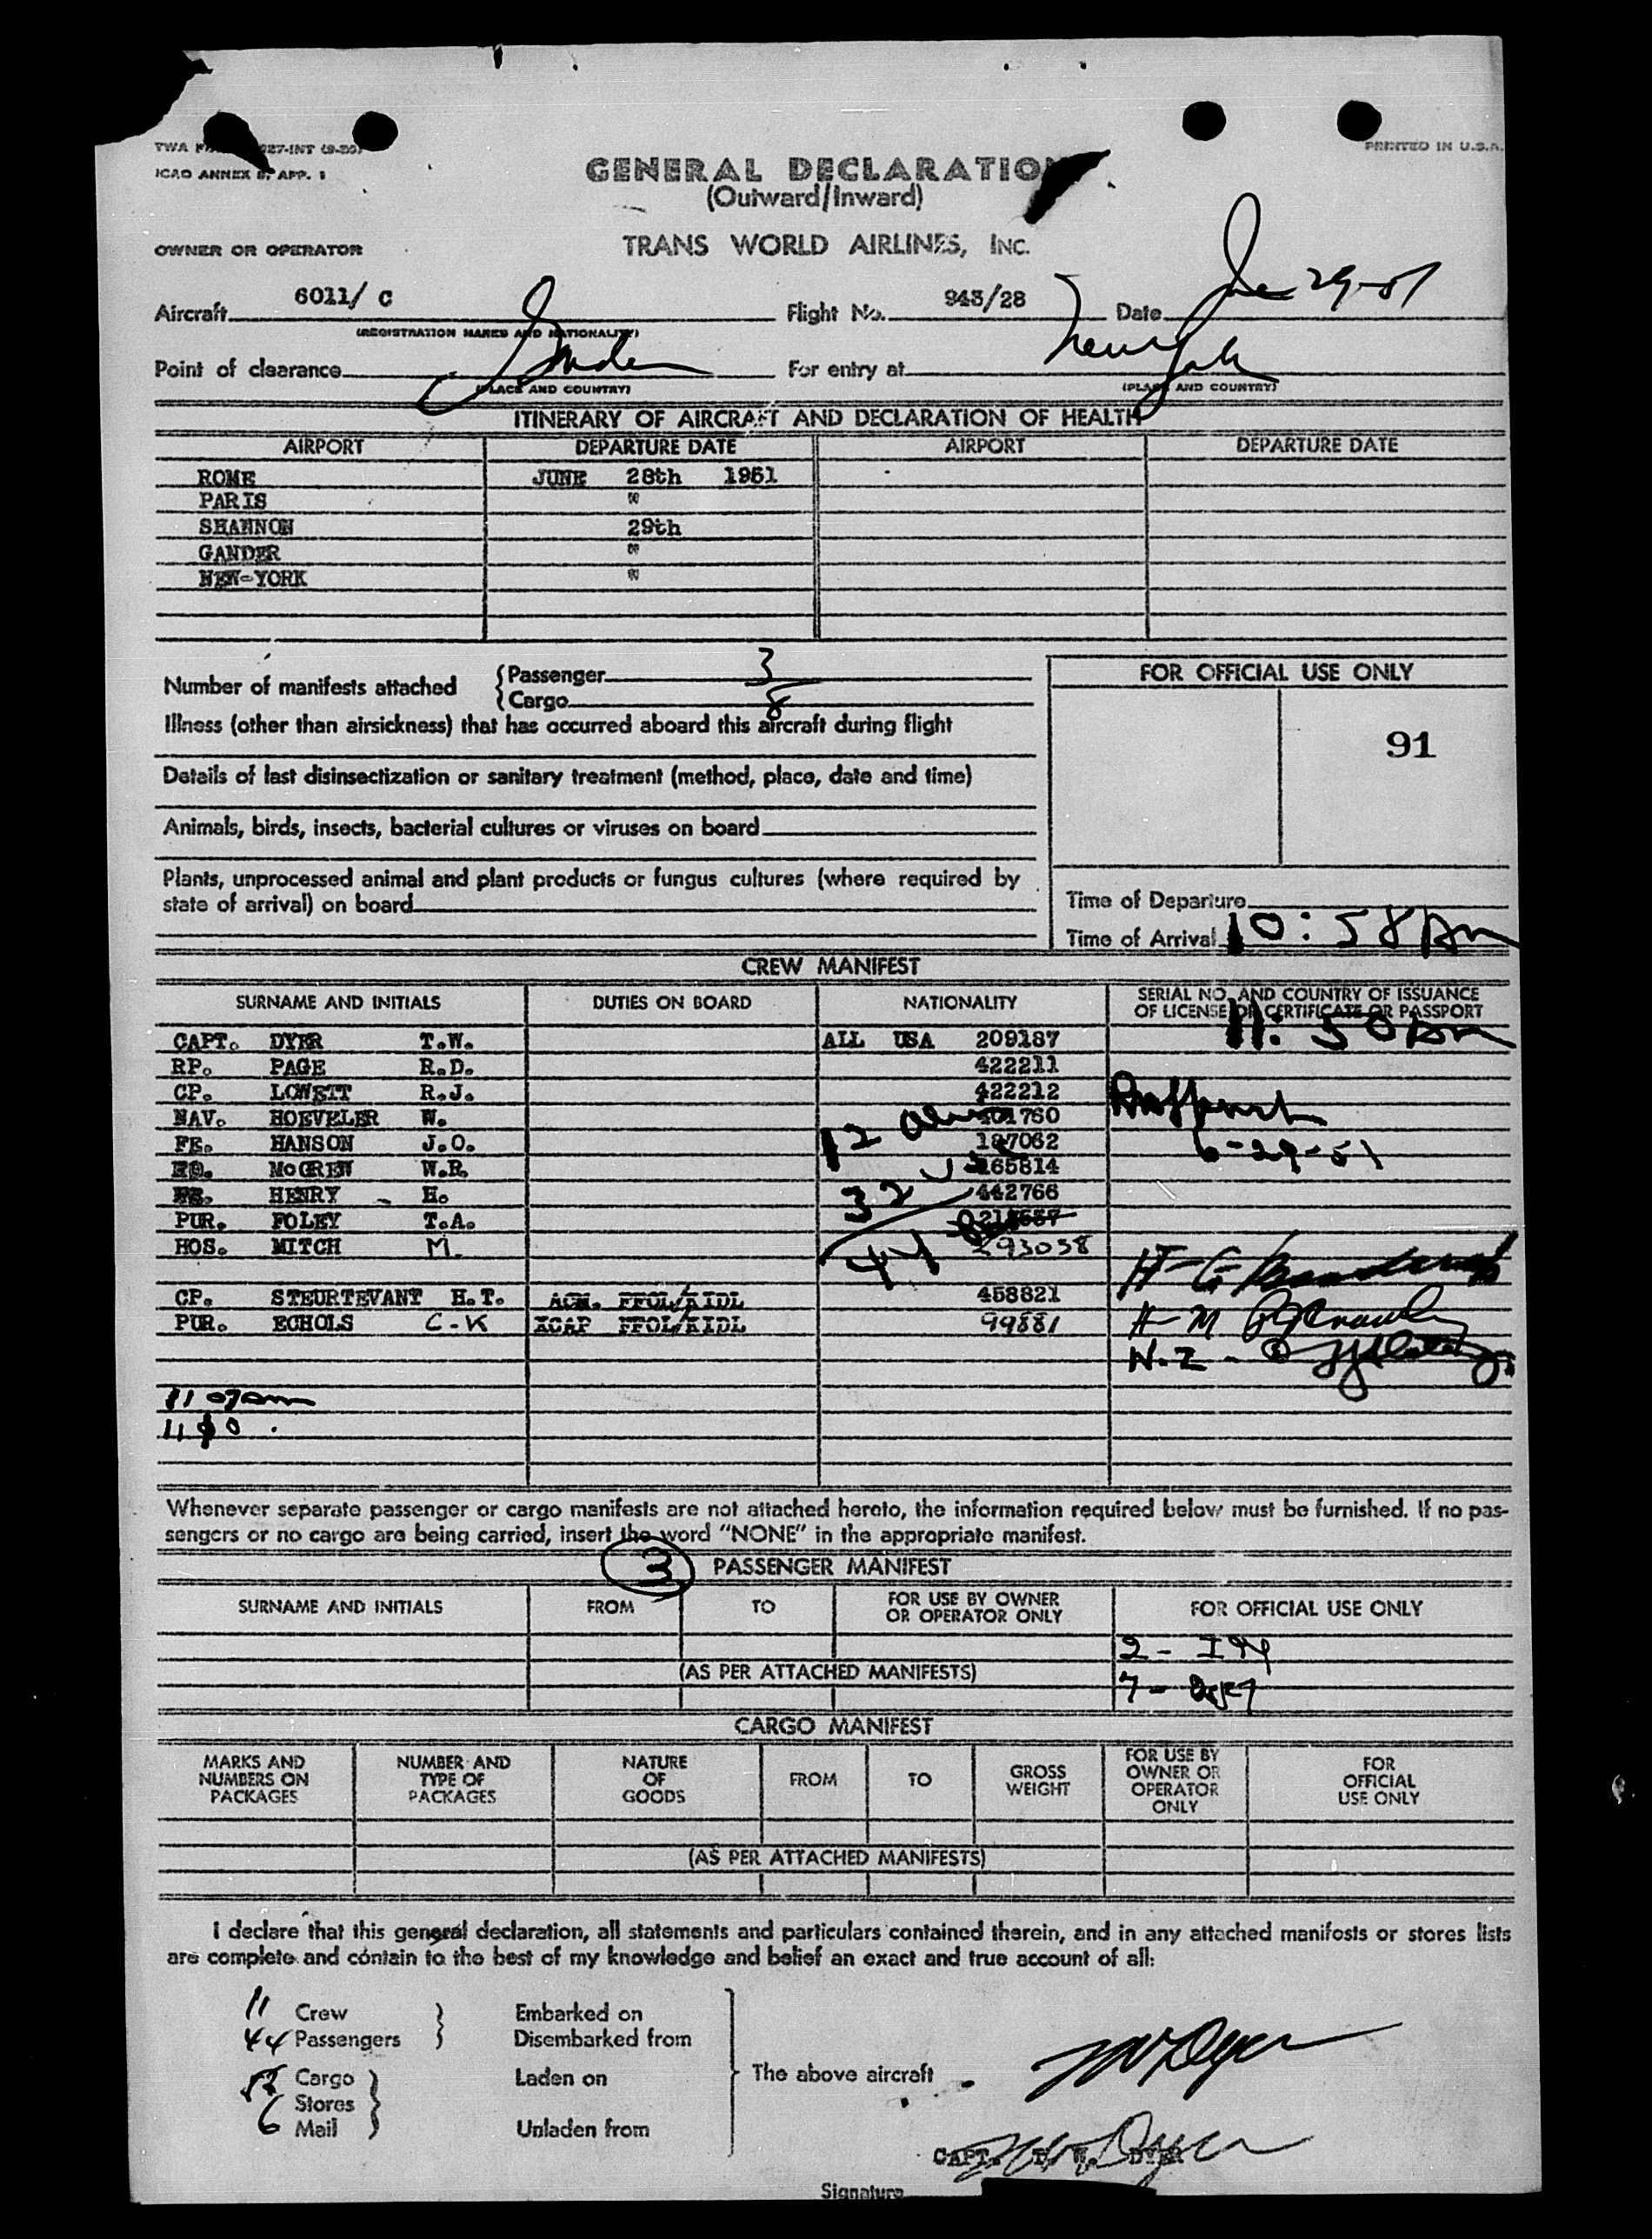 ICAO ANNEX 9, APP. 1
PRINTED IN U.S.A.
GENERAL DECLARATION
(Outward/Inward)
OWNER OR OPERATOR TRANS WORLD AIRLINES, INC.
Aircraft 6011/ C Flight No. 943/28 Date June 29-51
(REGISTRATION MARKS AND NATIONALITY)
Point of clearance Gander For entry at New York
(PLACE AND COUNTRY) (PLACE AND COUNTRY)
ITINERARY OF AIRCRAFT AND DECLARATION OF HEALTH
AIRPORT DEPARTURE DATE AIRPORT DEPARTURE DATE
ROME JUNE 28th 1951
PARIS "
SHANNON 29th
GANDER "
NEW-YORK "
Number of manifests attached { Passenger 3
Cargo 8
FOR OFFICIAL USE ONLY
91
Illness (other than airsickness) that has occurred aboard this aircraft during flight
Details of last disinsectization or sanitary treatment (method, place, date and time)
Animals, birds, insects, bacterial cultures or viruses on board
Plants, unprocessed animal and plant products or fungus cultures (where required by
state of arrival) on board
Time of Departure
Time of Arrival 10:58 am
CREW MANIFEST
SURNAME AND INITIALS DUTIES ON BOARD NATIONALITY SERIAL NO. AND COUNTRY OF ISSUANCE
OF LICENSE OR CERTIFICATE OR PASSPORT
11:50 am
CAPT. DYER T.W. ALL USA 209187
RP. PAGE R.D. 422211
CP. LOWETT R.J. 422212
NAV. HOEVELER W. 01760
FE. HANSON J.O. 187062
McGREW W.R. 265814
HENRY - H. 442766
PUR. FOLEY T.A.
HOS. MITCH M. 293038
12
32
44
6-29-51
CP. STEURTEVANT H.T. ACM. FFOL/KIDL 458821
PUR. ECHOLS C-K XCAP FFOL/KIDL 99881
11 07am
Whenever separate passenger or cargo manifests are not attached hereto, the information required below must be furnished. If no pas-
sengers or no cargo are being carried, insert the word "NONE" in the appropriate manifest.
3 PASSENGER MANIFEST
SURNAME AND INITIALS FROM TO FOR USE BY OWNER
OR OPERATOR ONLY FOR OFFICIAL USE ONLY
(AS PER ATTACHED MANIFESTS)
CARGO MANIFEST
MARKS AND
NUMBERS ON
PACKAGES
NUMBER AND
TYPE OF
PACKAGES
NATURE
OF
GOODS
FROM
TO
GROSS
WEIGHT
FOR USE BY
OWNER OR
OPERATOR
ONLY
FOR
OFFICIAL
USE ONLY
(AS PER ATTACHED MANIFESTS)
I declare that this general declaration, all statements and particulars contained therein, and in any attached manifests or stores lists
are complete and contain to the best of my knowledge and belief an exact and true account of all:
11 Crew } Embarked on
44 Passengers } Disembarked from
Cargo } Laden on
The above aircraft
TW Dyer
Stores
6 Mail Unladen from
CAPT. T. W. DYER
Signature